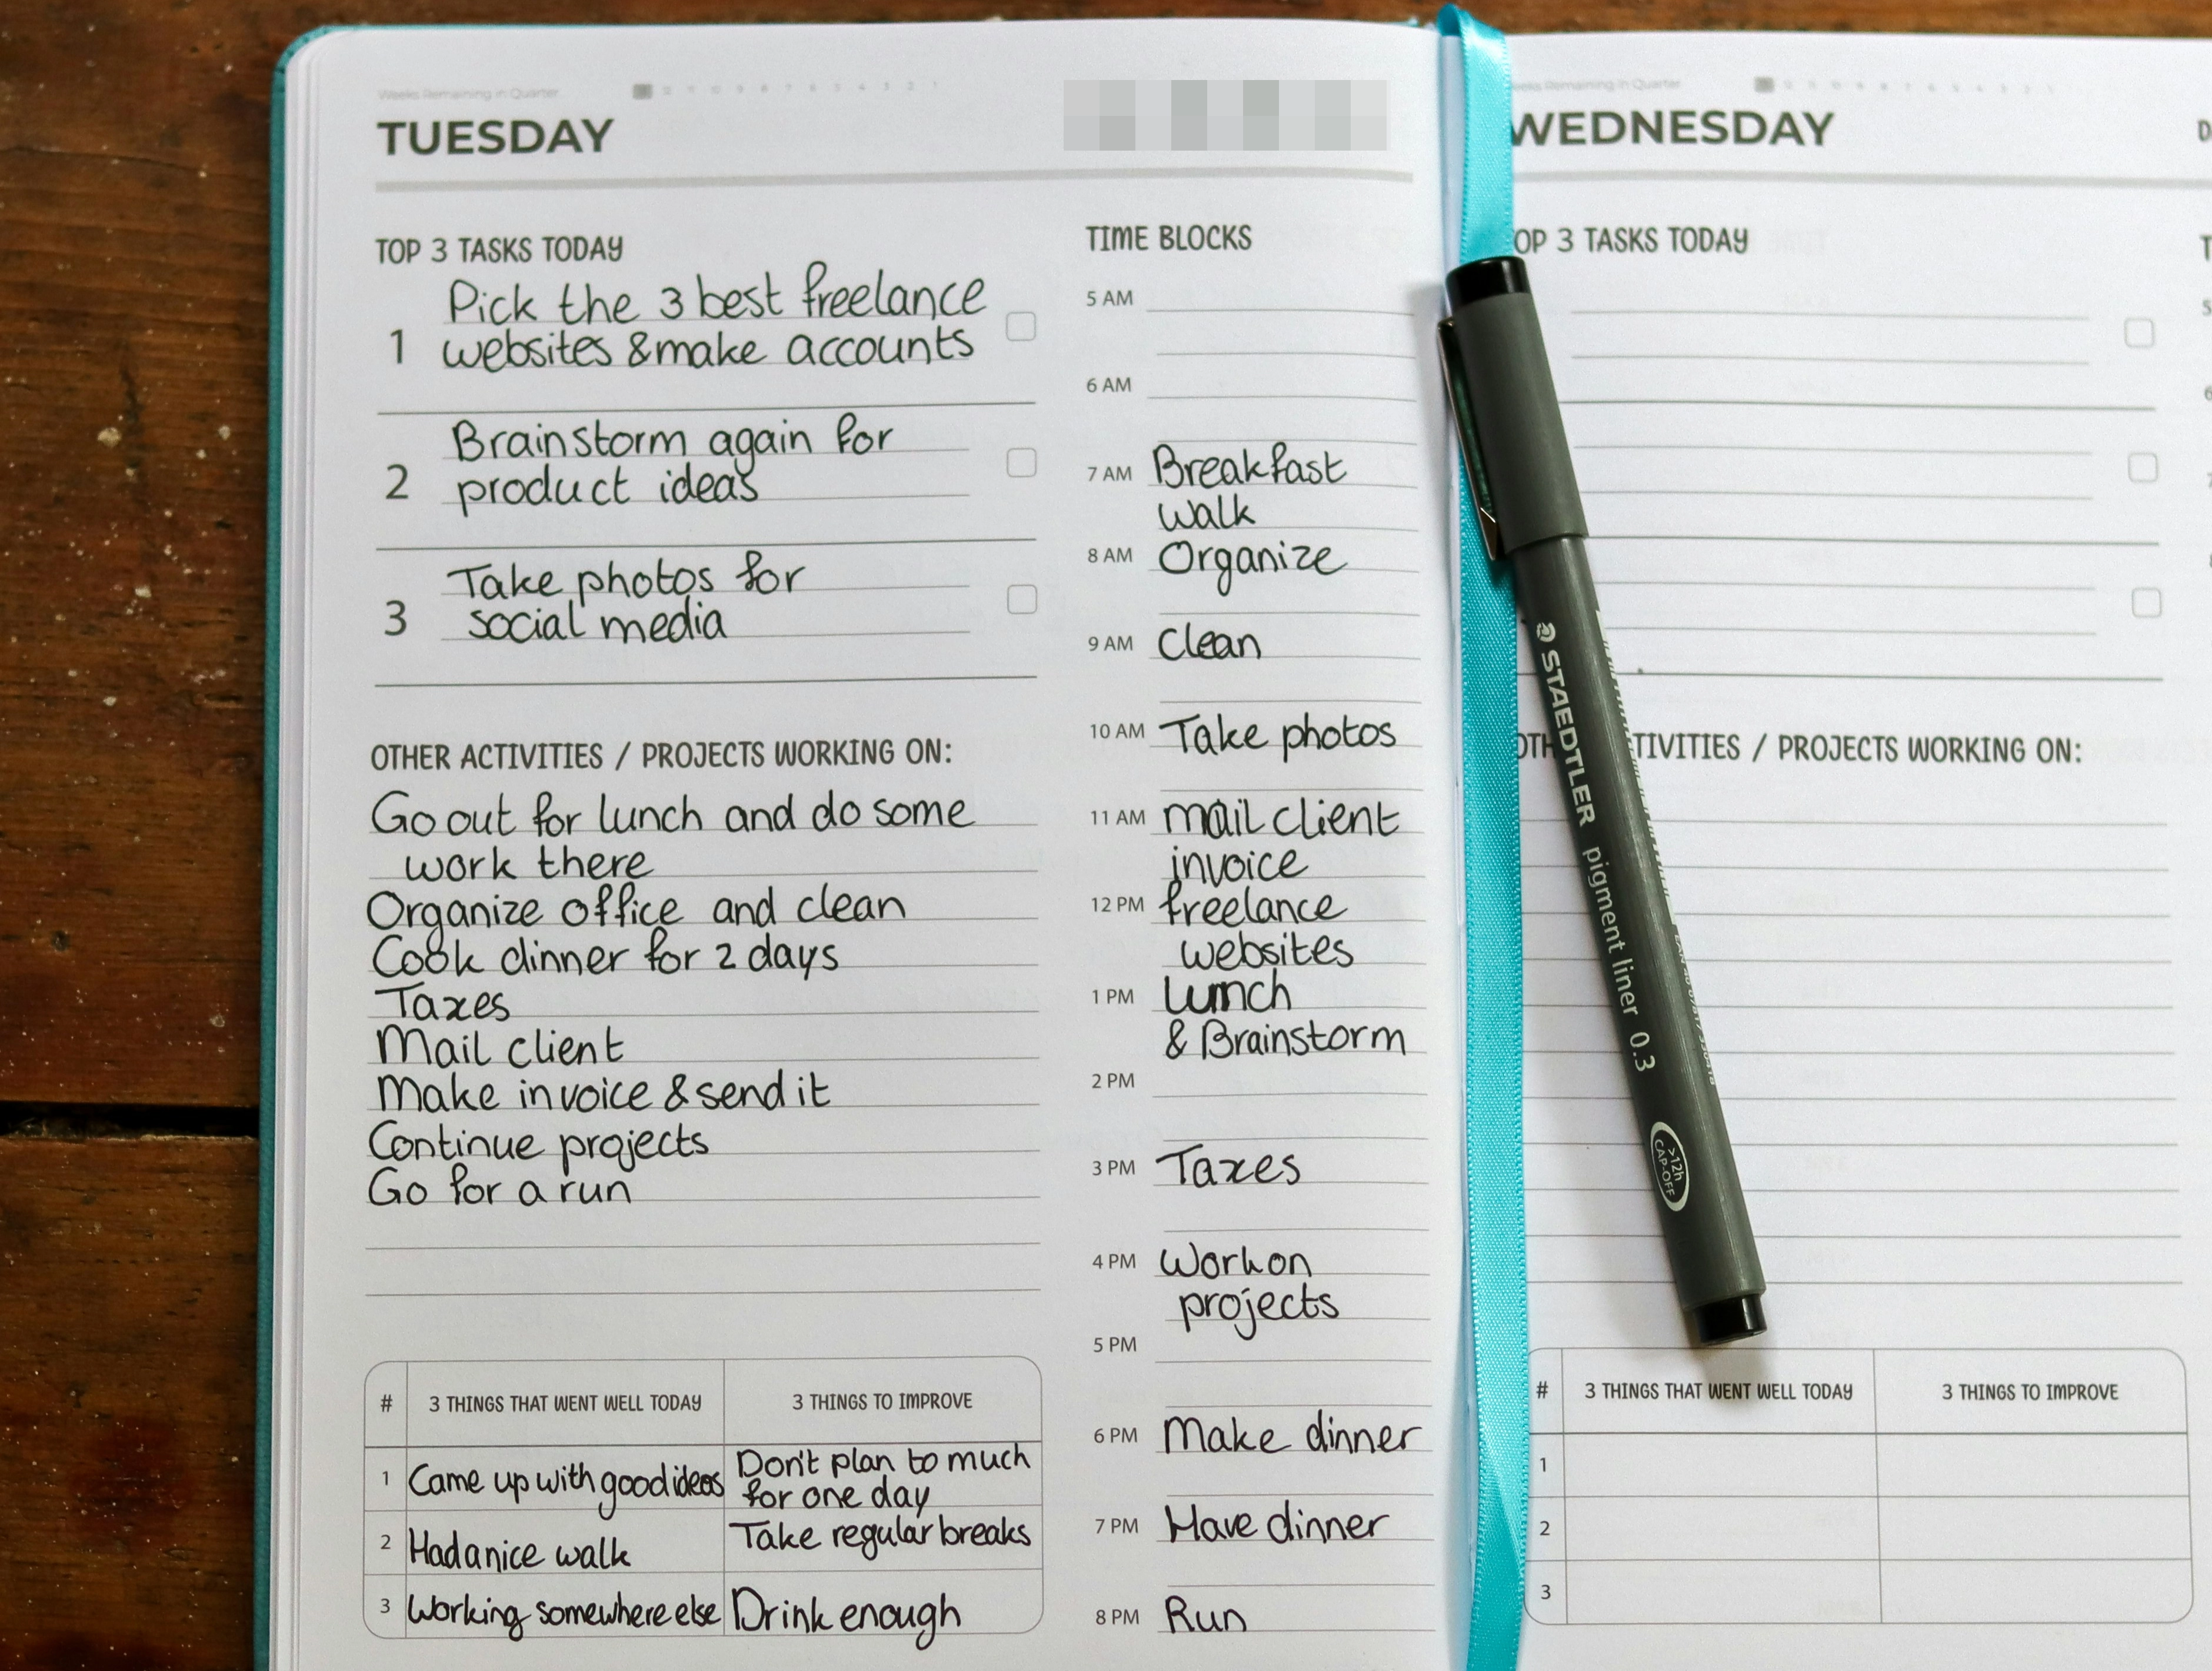 Weeks Remaining in Quarter
TUESDAY
TOP 3 TASKS TODAY
1
Pick the 3 best freelance
websites & make accounts
2
Brainstorm again for
product ideas
3
Take photos for
social media
OTHER ACTIVITIES / PROJECTS WORKING ON:
Go out for lunch and do some
work there
Organize office and clean
Cook dinner for 2 days
Taxes
Mail client
Make invoice & send it
Continue projects
Go for a run
# 3 THINGS THAT WENT WELL TODAY 3 THINGS TO IMPROVE
1 Came up with good ideas Don't plan to much
for one day
2 Had a nice walk Take regular breaks
3 Working somewhere else Drink enough
TIME BLOCKS
5 AM
6 AM
7 AM Breakfast
walk
8 AM Organize
9 AM Clean
10 AM Take photos
11 AM mail client
invoice
12 PM freelance
websites
1 PM Lunch
& Brainstorm
2 PM
3 PM Taxes
4 PM Work on
projects
5 PM
6 PM Make dinner
7 PM Have dinner
8 PM Run
STAEDTLER pigment liner 0.3
>12h
CAP-OFF
Remaining in Quarter
WEDNESDAY
OP 3 TASKS TODAY
OTH TIVITIES / PROJECTS WORKING ON:
# 3 THINGS THAT WENT WELL TODAY 3 THINGS TO IMPROVE
1
2
3